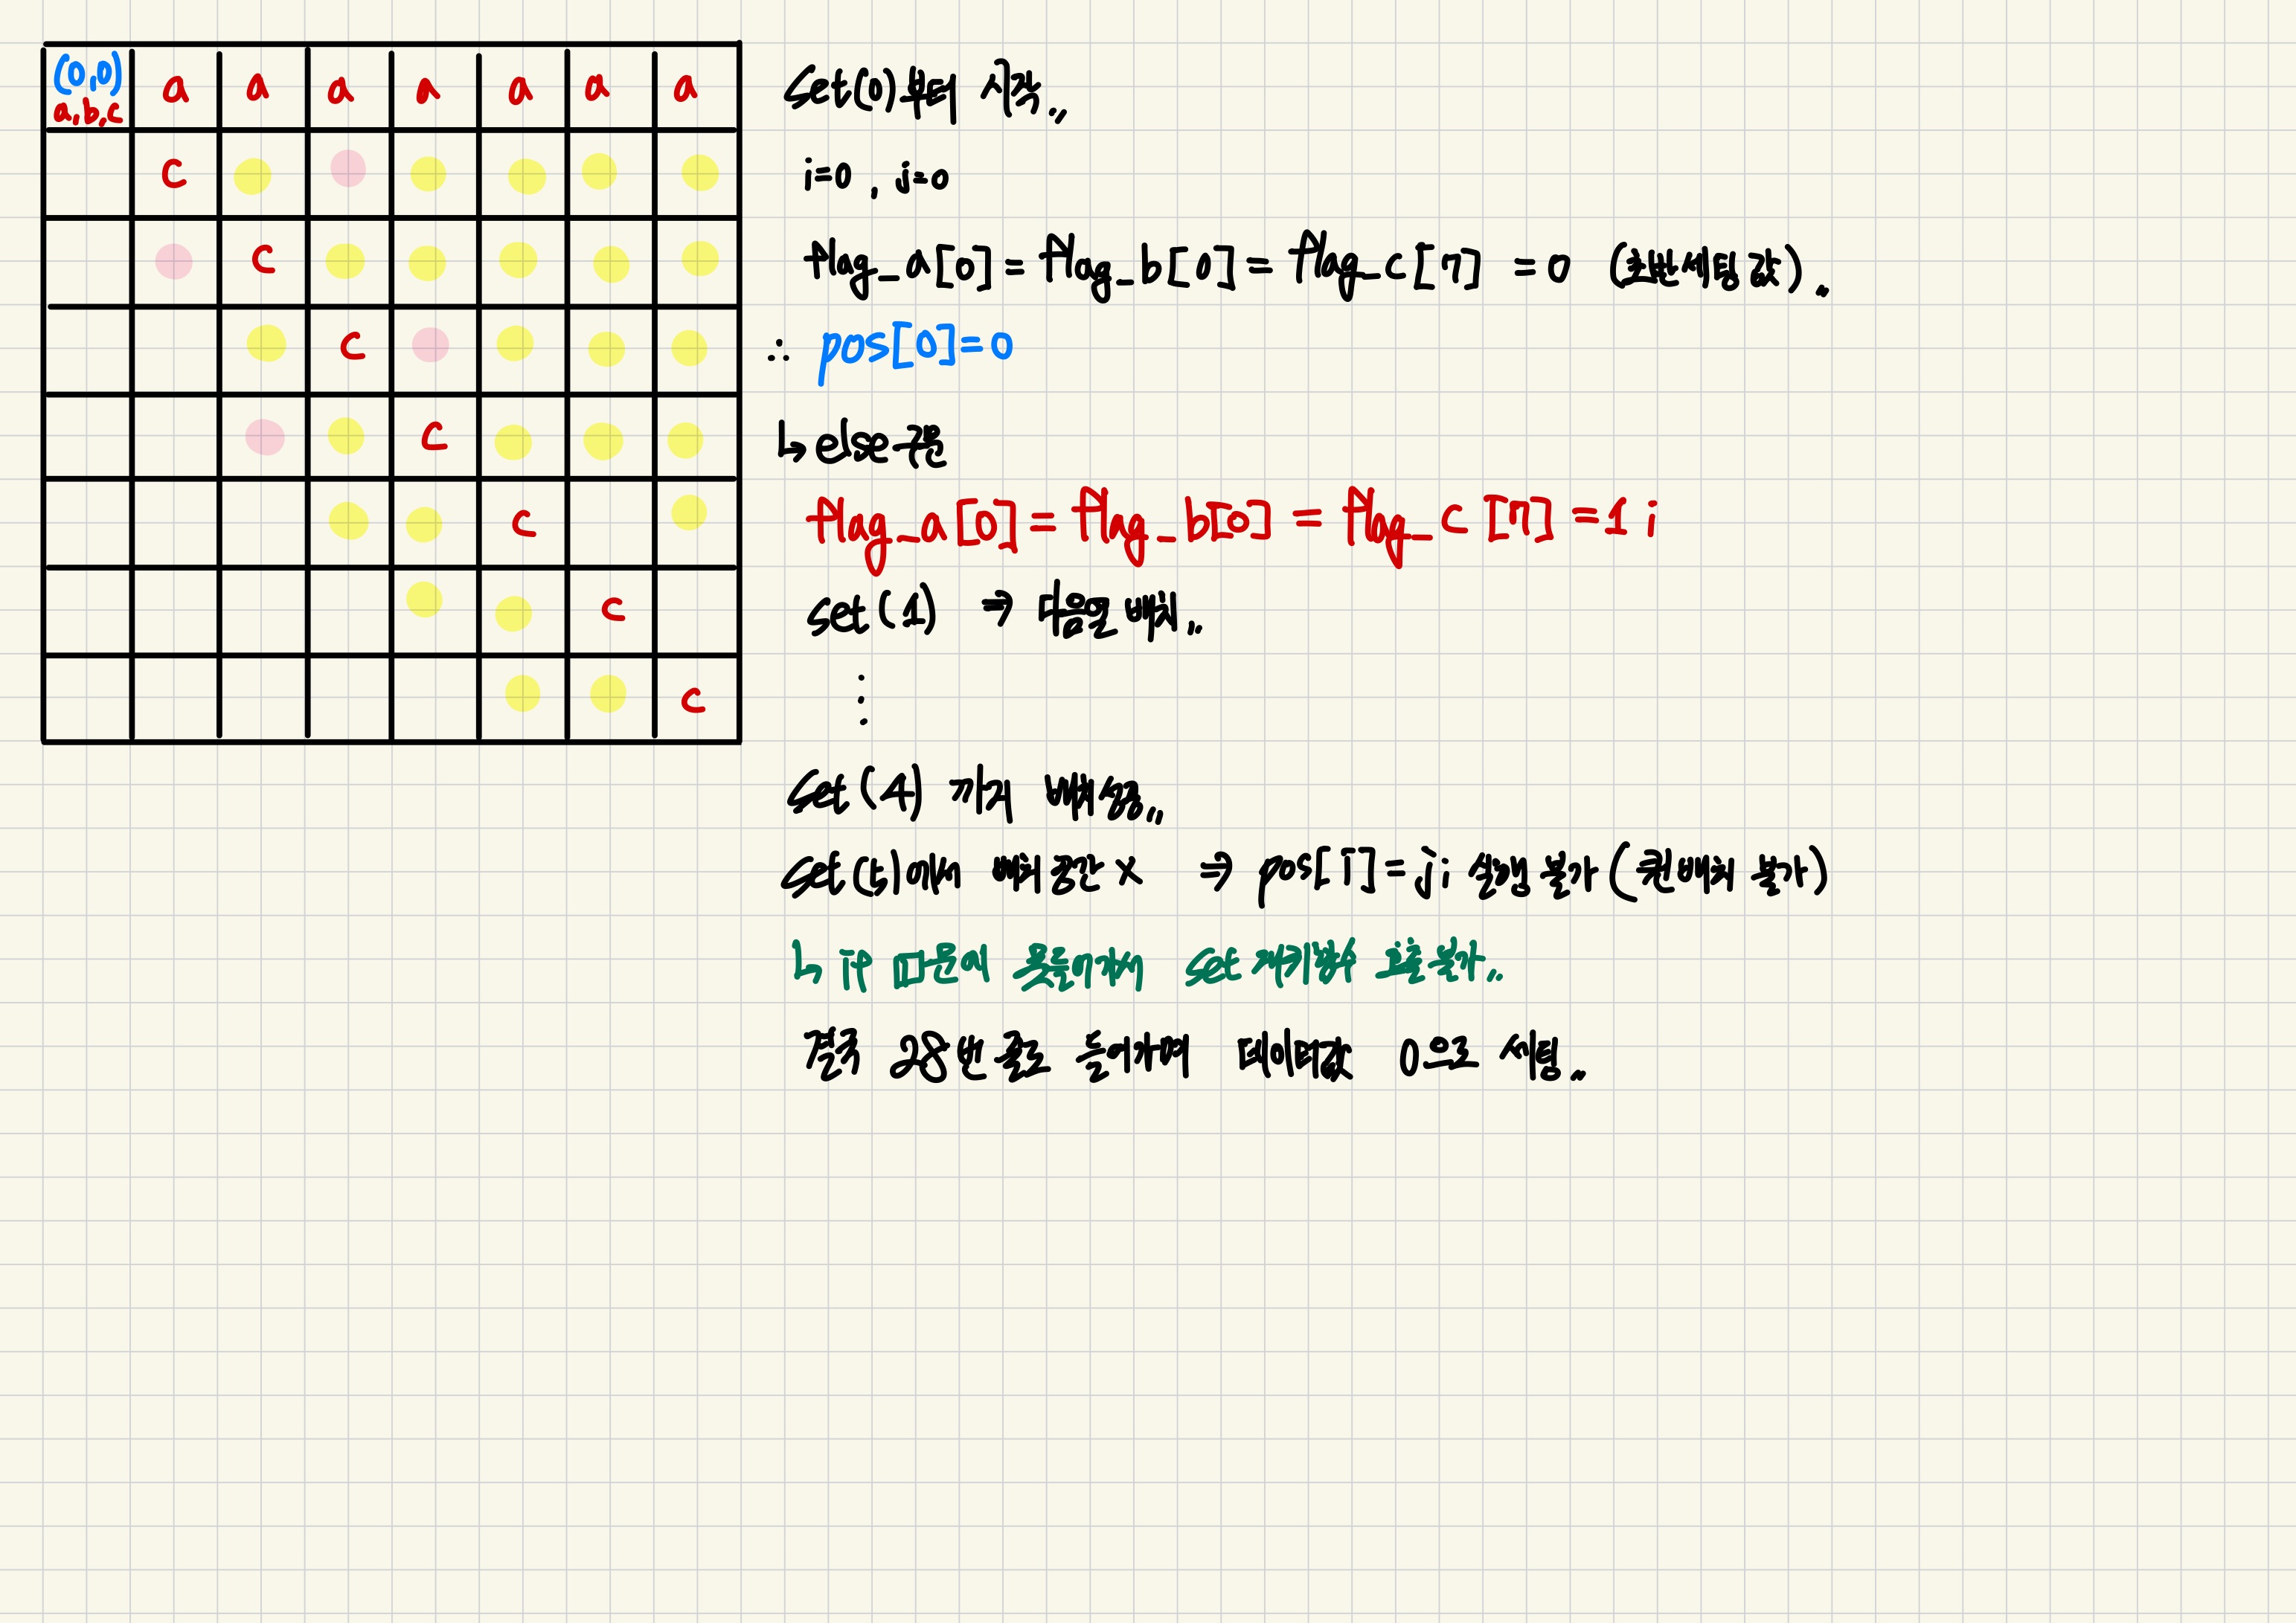 (0,0) a a a a a a a
a,b,c
c
c
c
c
c
c
c
set(0)부터 시작..
i=0, j=0
flag_a[0] = flag_b[0] = flag_c[7] = 0 (초반 세팅 값).
∴ pos[0]=0
↳ else 구문
flag_a[0] = flag_b[0] = flag_c[7] = 1 ;
set(1) ⇒ 다음열 배치..
⋮
set(4) 까지 배치성공..
set(5)에서 배치 공간 x ⇒ pos[i]=j; 실행 불가 (퀸배치 불가)
↳ if 구문에 못들어가서 set 재귀함수 호출 불가..
결국 28번 줄로 들어가며 데이터값 0으로 세팅..